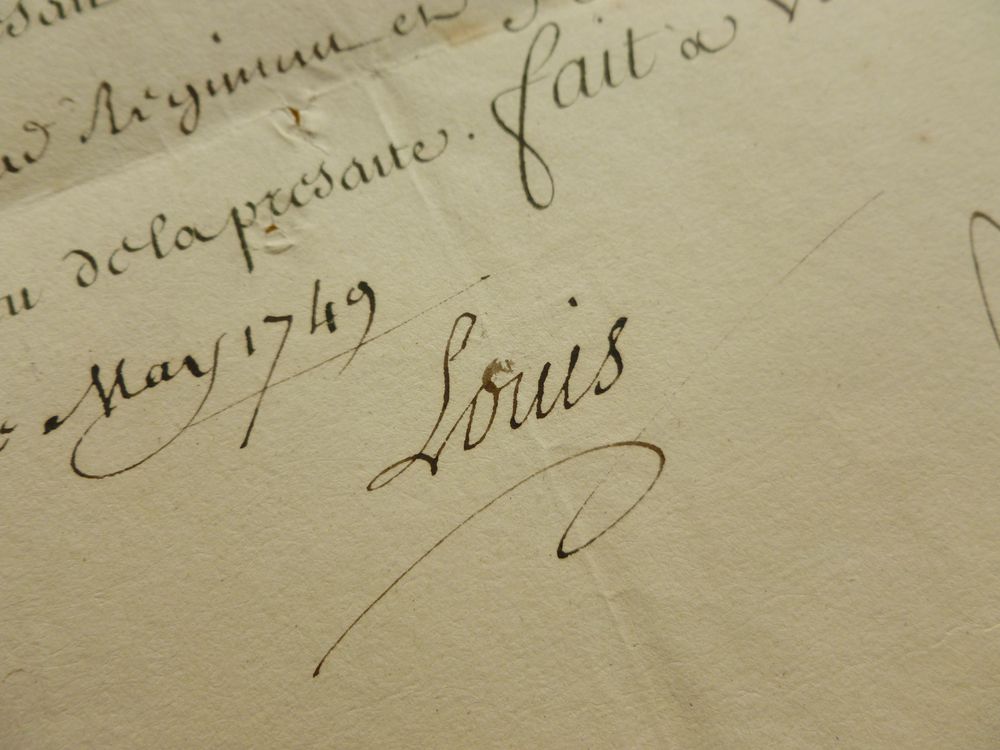 Regiment en
de la presante. fait à
May 1749
Louis